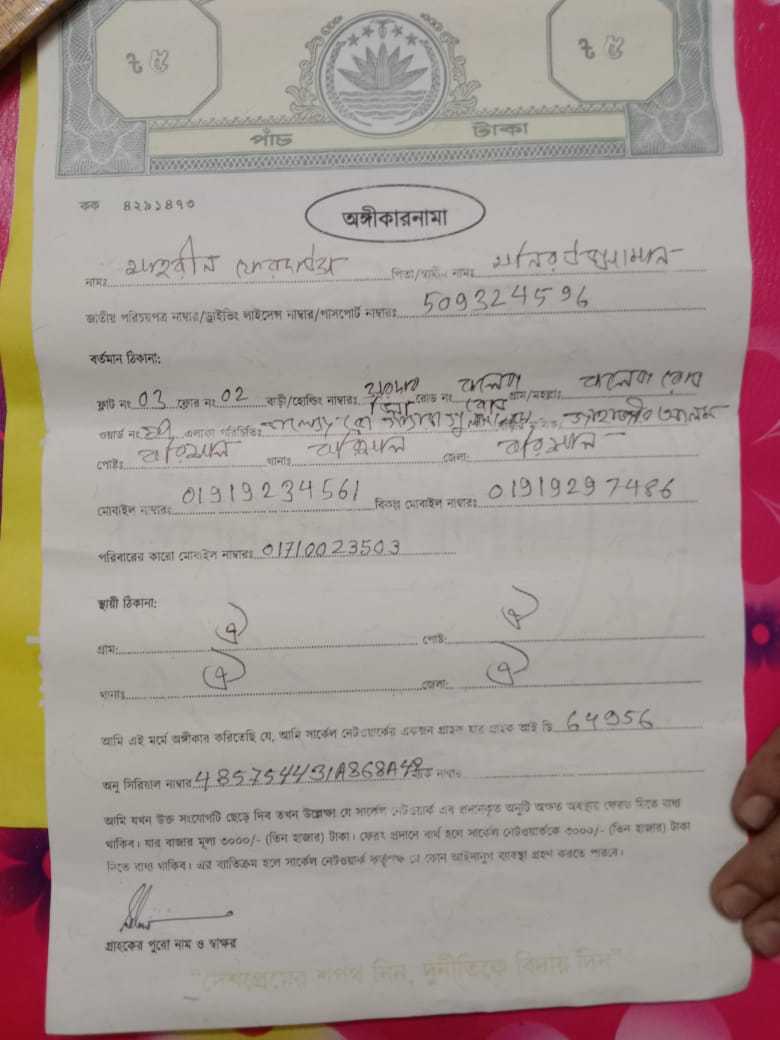 ৳ ৫ ৳ ৫
পাঁচ টাকা
কক ৪২৯১৪৭৩
অঙ্গীকারনামা
নামঃ ফেরদাউস পিতা/স্বামীর নামঃ মনিরউজ্জামান
জাতীয় পরিচয়পত্র নাম্বার/ড্রাইভিং লাইসেন্স নাম্বার/পাসপোর্ট নাম্বারঃ 509324596
বর্তমান ঠিকানা:
ফ্লাট নং 03 ফ্লোর নং 02 বাড়ী/হোল্ডিং নাম্বারঃ রোড নং কলেজ গ্রাম/মহল্লাঃ কলেজ রোড
ওয়ার্ড নং এলাকা পরিচিতিঃ জাহাঙ্গীর আলম
পোষ্টঃ বরিশাল থানাঃ বরিশাল জেলা: বরিশাল
মোবাইল নাম্বারঃ 01919234561 বিকল্প মোবাইল নাম্বারঃ 01919297486
পরিবারের কারো মোবাইল নাম্বারঃ 01710023503
স্থায়ী ঠিকানা:
গ্রাম: ঐ পোষ্ট: ঐ
থানাঃ ঐ জেলা: ঐ
আমি এই মর্মে অঙ্গীকার করিতেছি যে, আমি সার্কেল নেটওয়ার্কের একজন গ্রাহক যার গ্রাহক আই ডি 64956
অনু সিরিয়াল নাম্বার 485754431A868A42 নাম্বারঃ
আমি যখন উক্ত সংযোগটি ছেড়ে দিব তখন উল্লেক্ষ্য যে সার্কেল নেটওয়ার্ক এর প্রদানকৃত অনুটি অক্ষত অবস্থায় ফেরত দিতে বাধ্য
থাকিব। যার বাজার মূল্য ৩০০০/- (তিন হাজার) টাকা। ফেরৎ প্রদানে ব্যর্থ হলে সার্কেল নেটওয়ার্ককে ৩০০০/- (তিন হাজার) টাকা
দিতে বাধ্য থাকিব। এর ব্যতিক্রম হলে সার্কেল নেটওয়ার্ক কর্তৃপক্ষ যে কোন আইনানুগ ব্যবস্থা গ্রহণ করতে পারবে।
গ্রাহকের পুরো নাম ও স্বাক্ষর
"দেশপ্রেমের শপথ নিন, দুর্নীতিকে বিদায় দিন"